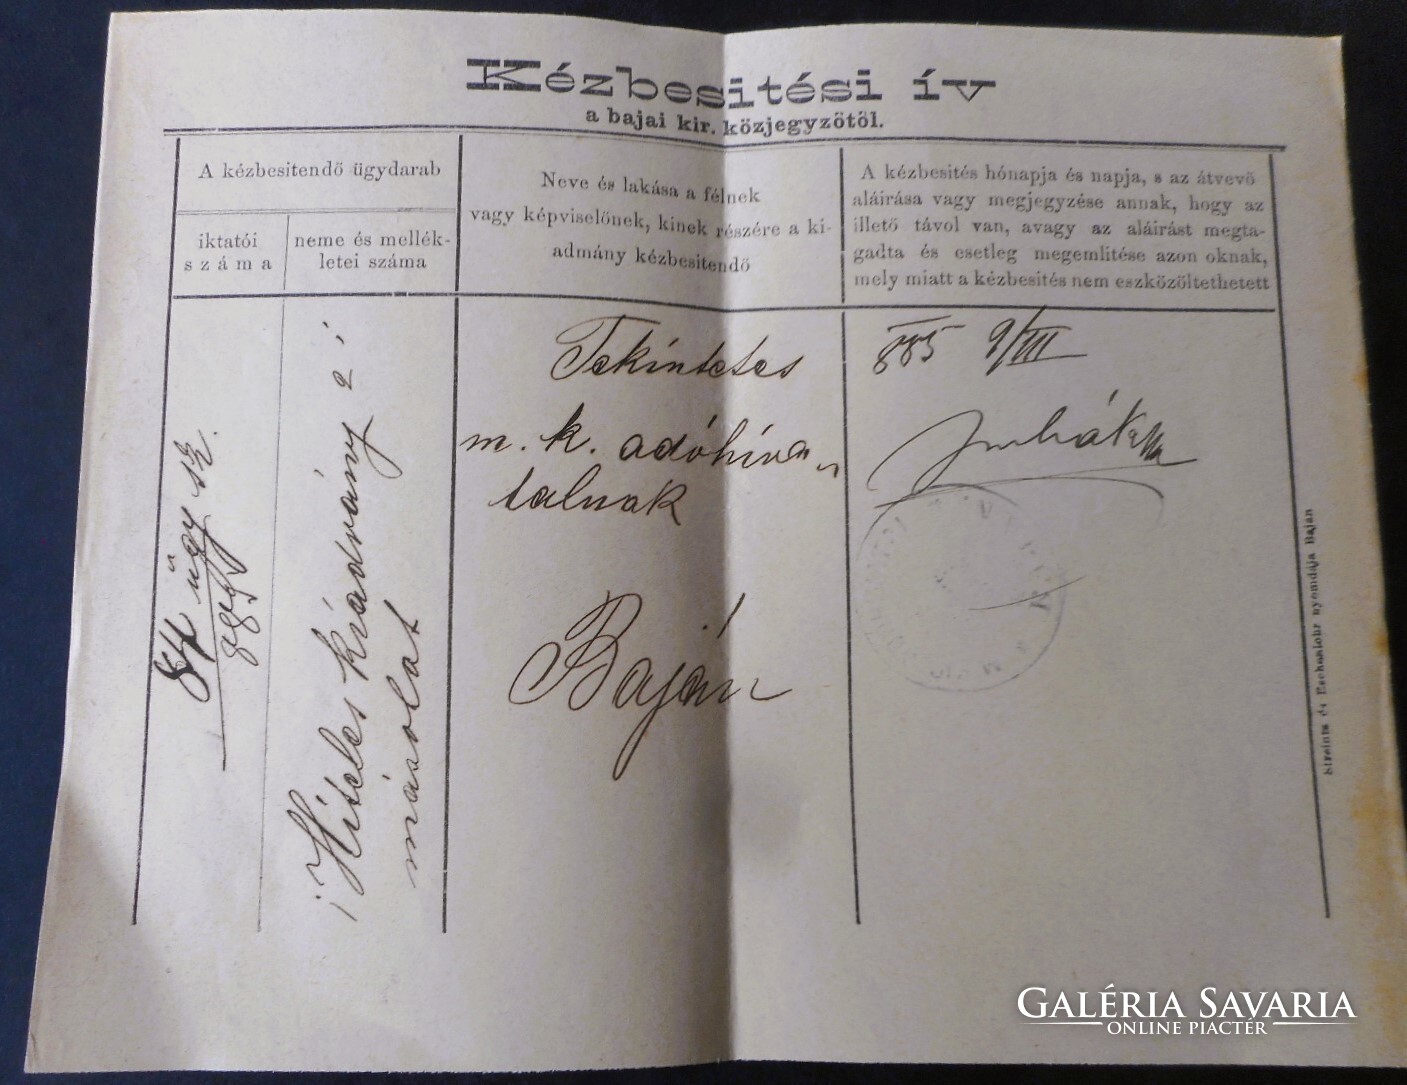 Kézbesitési ív
a bajai kir. közjegyzőtől.
A kézbesitendő ügydarab
iktatói
száma
neme és mellék-
letei száma
Neve és lakása a félnek
vagy képviselőnek, kinek részére a ki-
admány kézbesitendő
A kézbesités hónapja és napja, s az átvevő
aláirása vagy megjegyzése annak, hogy az
illető távol van, avagy az aláirást megta-
gadta és esetleg megemlitése azon oknak,
mely miatt a kézbesités nem eszközöltethetett
84 ügy sz.
Hiteles kiadvány
másolat
Tekintetes
m. k. adóhiva-
talnak
Baján
885 9/III
nyomdája Baján
GALÉRIA SAVARIA
ONLINE PIACTÉR